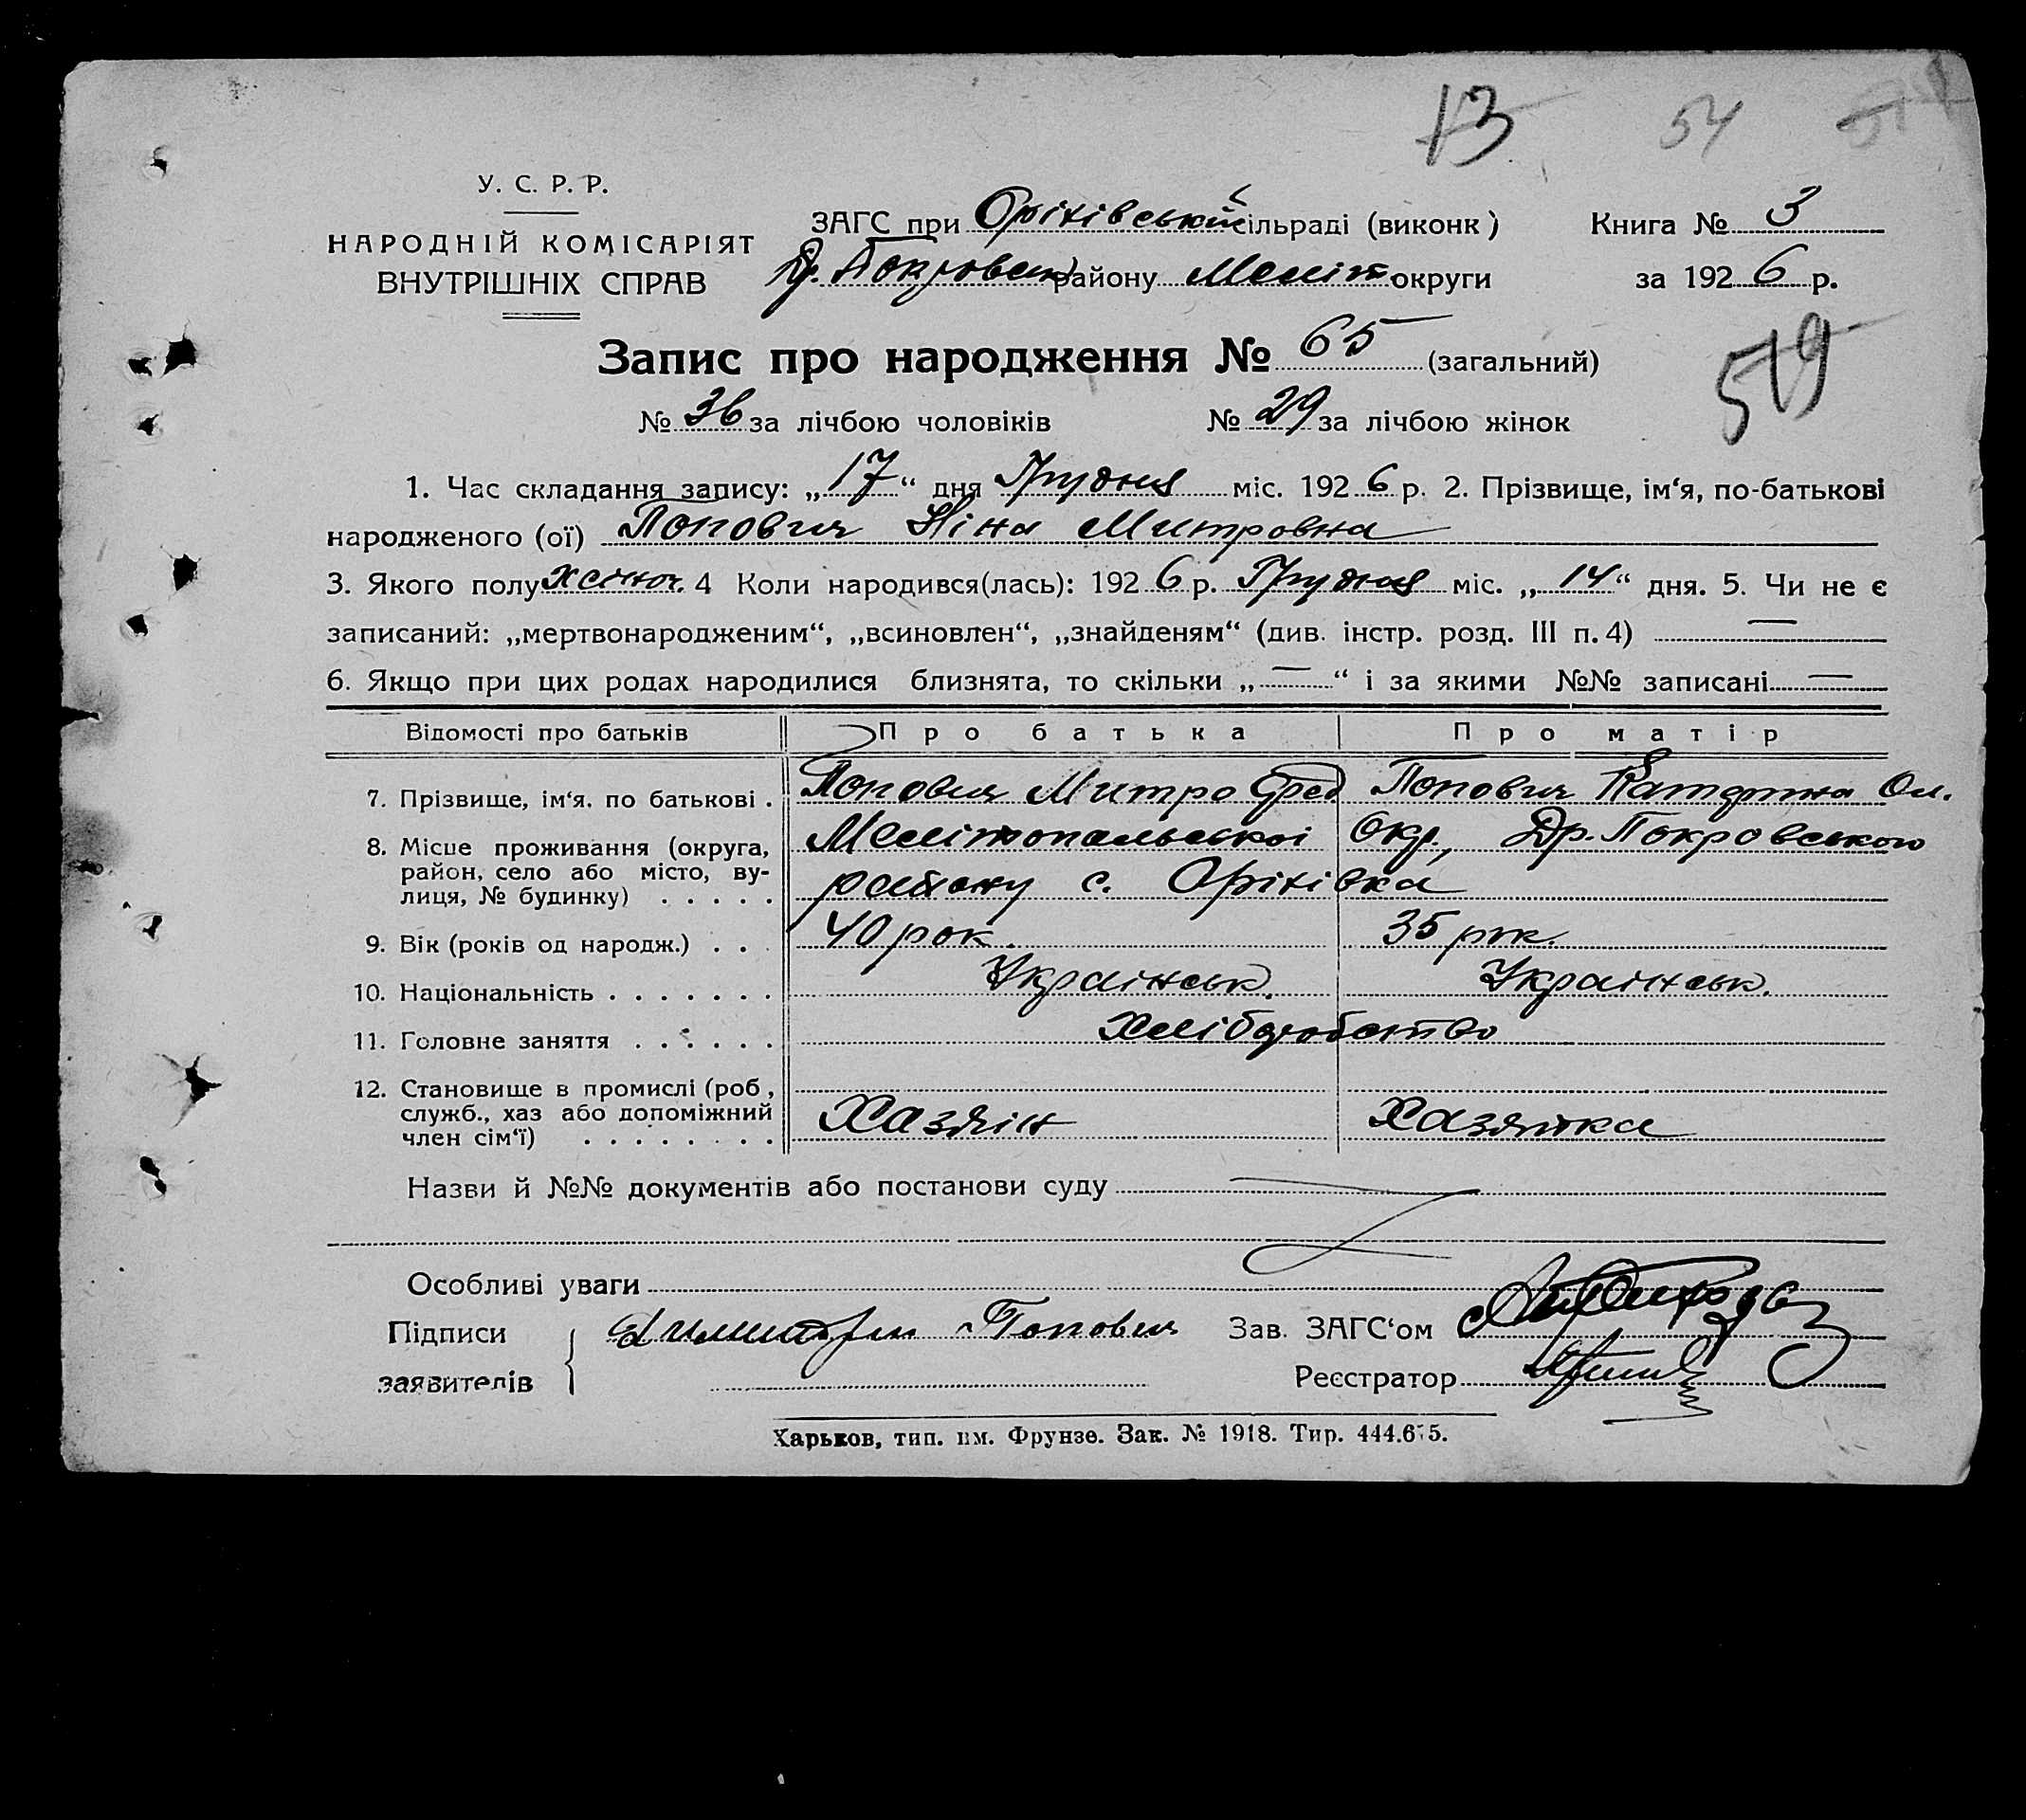 13 54
У. С. Р. Р.
НАРОДНІЙ КОМІСАРІЯТ
ВНУТРІШНІХ СПРАВ
ЗАГС при Оріхівській сільраді (виконк) Книга № 3
Др. Покровськ району Меліт округи за 1926 р.
Запис про народження № 65 (загальний)
519
№ 36 за лічбою чоловіків № 29 за лічбою жінок
1. Час складання запису: „17“ дня Грудня міс. 1926 р. 2. Прізвище, ім‘я, по-батькові
народженого (ої) Попович Ніна Митровна
3. Якого полу жіноч. 4 Коли народився(лась): 1926 р. Грудня міс. „14“ дня. 5. Чи не є
записаний: „мертвонародженим“, „всиновлен“, „знайденям“ (див. інстр. розд. III п. 4) —
6. Якщо при цих родах народилися близнята, то скільки „—“ і за якими №№ записані —
Відомості про батьків Про батька Про матір
7. Прізвище, ім‘я. по батькові . Попович Митро Фред Попович Катерина Ол.
8. Місце проживання (округа, Мелітопальської Окр., Др. Покровського
район, село або місто, ву- району с. Оріхівка
лиця, № будинку) . . . . .
9. Вік (років од народж.) . . . 40 рок. 35 рок.
10. Національність . . . . . . . Українськ. Українськ.
11. Головне заняття . . . . . . Хліборобство
12. Становище в промислі (роб,
служб., хаз або допоміжний Хазяін Хазяйка
член сім‘ї) . . . . . . . .
Назви й №№ документів або постанови суду
Особливі уваги
Підписи Попович Зав. ЗАГС‘ом
заявителів Реєстратор
Харьков, тип. им. Фрунзе. Зак. № 1918. Тир. 444.675.